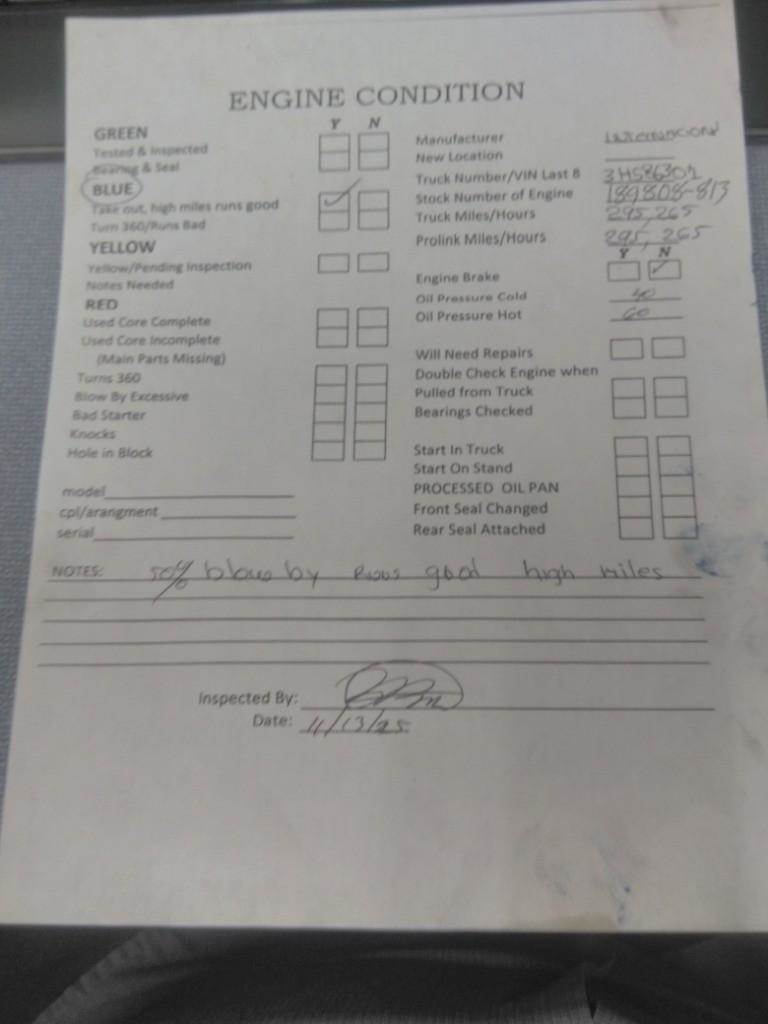 ENGINE CONDITION
Y N
GREEN
Tested & Inspected
Bearing & Seal
BLUE
Take out, high miles runs good
Turn 360/Runs Bad
YELLOW
Yellow/Pending Inspection
Notes Needed
RED
Used Core Complete
Used Core Incomplete
(Main Parts Missing)
Turns 360
Blow By Excessive
Bad Starter
Knocks
Hole in Block
model
cpl/arangment
serial
Manufacturer
New Location
Truck Number/VIN Last 8
Stock Number of Engine 189808-813
Truck Miles/Hours 295,265
Prolink Miles/Hours 295, 265
Y N
Engine Brake
Oil Pressure Cold 40
Oil Pressure Hot 60
Will Need Repairs
Double Check Engine when
Pulled from Truck
Bearings Checked
Start In Truck
Start On Stand
PROCESSED OIL PAN
Front Seal Changed
Rear Seal Attached
NOTES: 50% blow by Runs good high miles
Inspected By:
Date: 11/13/25